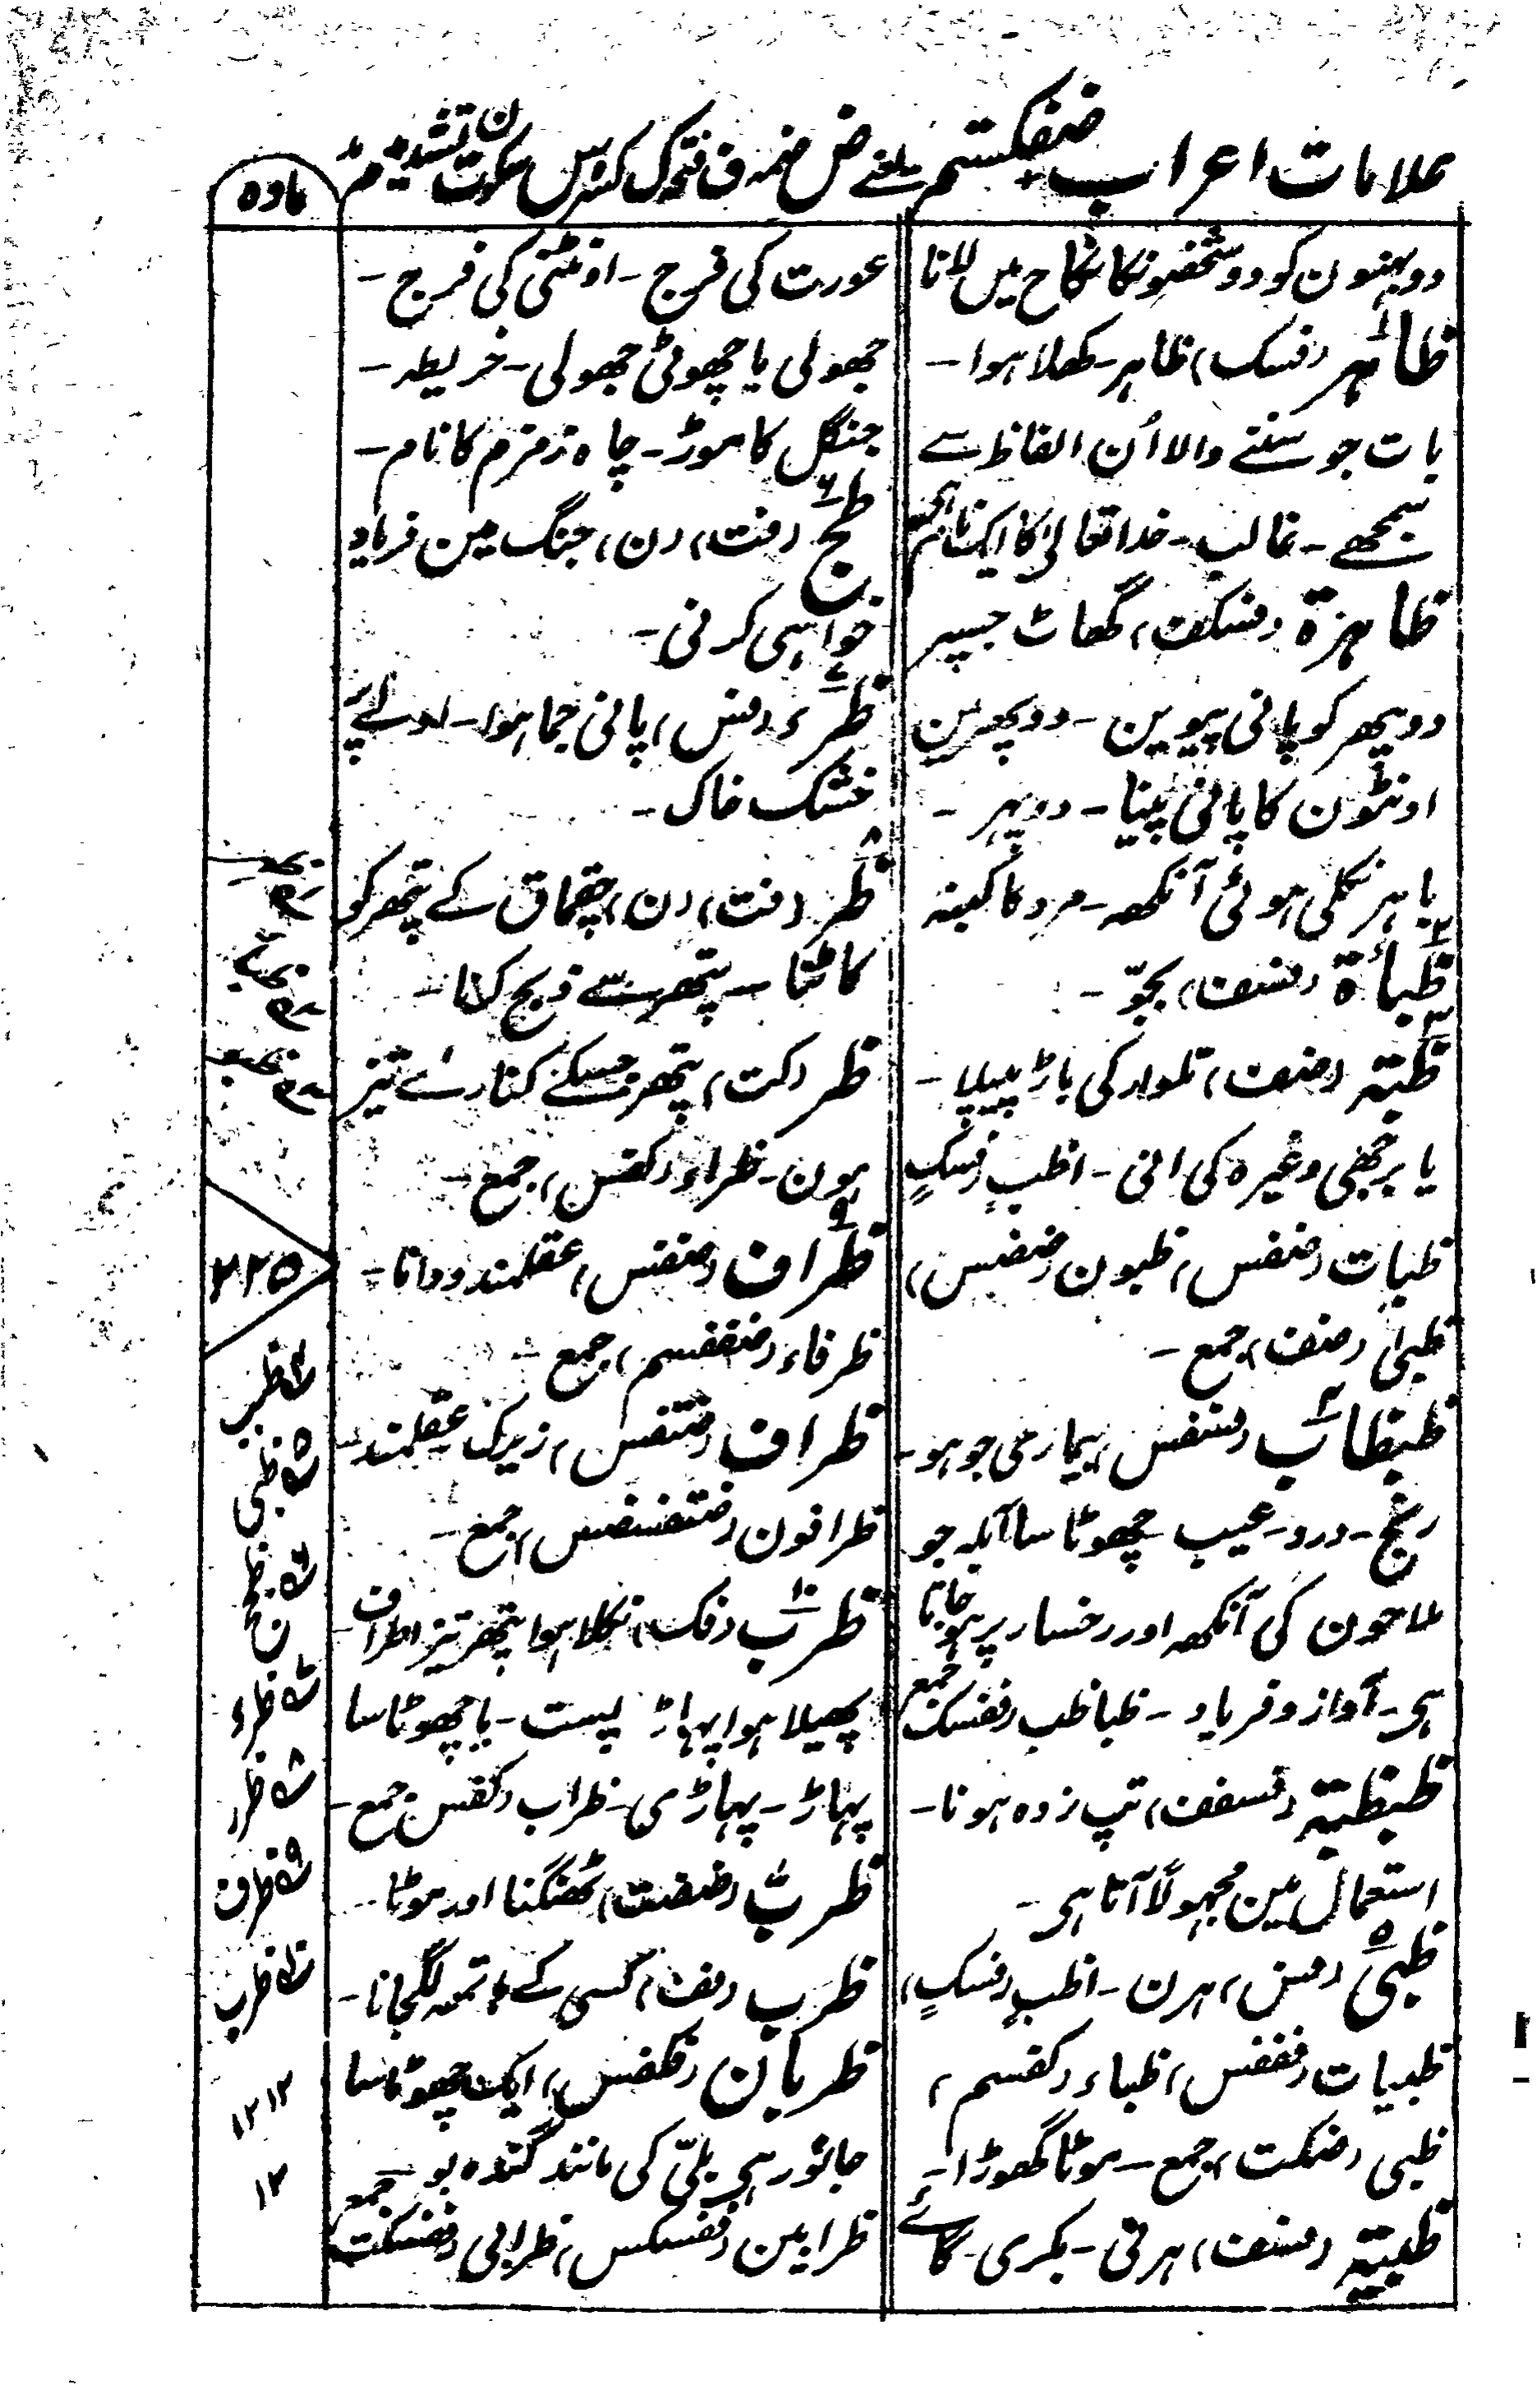 علامات اعراب ضفکستم یعنے ض ضمہ ف فتحہ ک کسرہ س سکون ت تشدید م مد
مادہ
دو بہنون کو دو شخصونکا نکاح میں لانا
ظاہر (فسک) ظاہر - کھلا ہوا -
بات جو سننے والا اُن الفاظ سے
سمجھے - غالب - خدا تعالیٰ کا ایک نام ہی
ظاہرة (فسکف) گھاٹ جسپر
دوپہر کو پانی پیوین - دوپہرین
اونٹون کا پانی پینا - دوپہر -
باہر نکلی ہوئی آنکھہ - مرد کا کینہ
ظبأة (فسف) بجّو -
ظبتہ (ضف) تلوار کی باڑ پیپلا -
یا برچھی وغیرہ کی انی - اظبٍ (فسکٍ)
ظبات (ضفس) ظبون (ضضس)
ظبیً (ضف) جمع -
ظبظاب (فسفس) بیماری جو ہو -
رنج - درد - عیب - چھوٹا سا آبلہ جو
ملاحون کی آنکھہ اور رخسار پر ہوجاتا
ہی - آواز و فریاد - ظباظب (ففسک) جمع
ظبظبتہ (فسففف) تپ زدہ ہونا -
استعمال مین مجہولاً آتا ہی -
ظبیٌ (فس) ہرن - اظبٍ (فسکٍ)
ظبیات (فففس) ظباء (کفسم)
ظبی (ضکت) جمع - موٹا گھوڑا -
ظبیتہ (فسف) ہرنی - بکری - گائے
عورت کی فرج - اونٹنی کی فرج -
جھولی یا چھوٹی جھولی - خریطہ -
جنگل کا موڑ - چاہ زمزم کا نام -
ظج (فت) (ن) جنگ مین فریاد
خواہی کرنی -
ظرء (فس) پانی جما ہوا - اولے
خشک خاک -
ظر (فت) (ن) چقماق کے پتھر کو
کاٹنا - پتھر سے ذبح کرنا -
ظر (کت) پتھر جسکے کنارے تیز
ہون - ظراء (کفس) جمع -
ظراف (ضفس) عقلمند و دانا -
ظرفاء (ضففسم) جمع -
ظراف (ضتفس) زیرک عقلمند -
ظرافون (ضتفسضس) جمع -
ظرب (فک) نکلا ہوا پتھر تیز اطراف -
پھیلا ہوا پہاڑ پست - یا چھوٹا سا
پہاڑ - پہاڑی - ظراب (کفس) جمع -
ظربّ (ضضت) ٹھنگنا اور موٹا -
ظرب (فف) کسی کے تمہ لگجانا -
ظربان (فکفس) ایک چھوٹا سا
جانور ہی بلّی کی مانند گندہ بو -
ظرابین (ففسکس) ظرابی (ففسکت) جمع
۲۲۵
ظبی
ظج
ظرء
ظرر
ظرف
ظرب
۱۲ ۱۲
۱۲